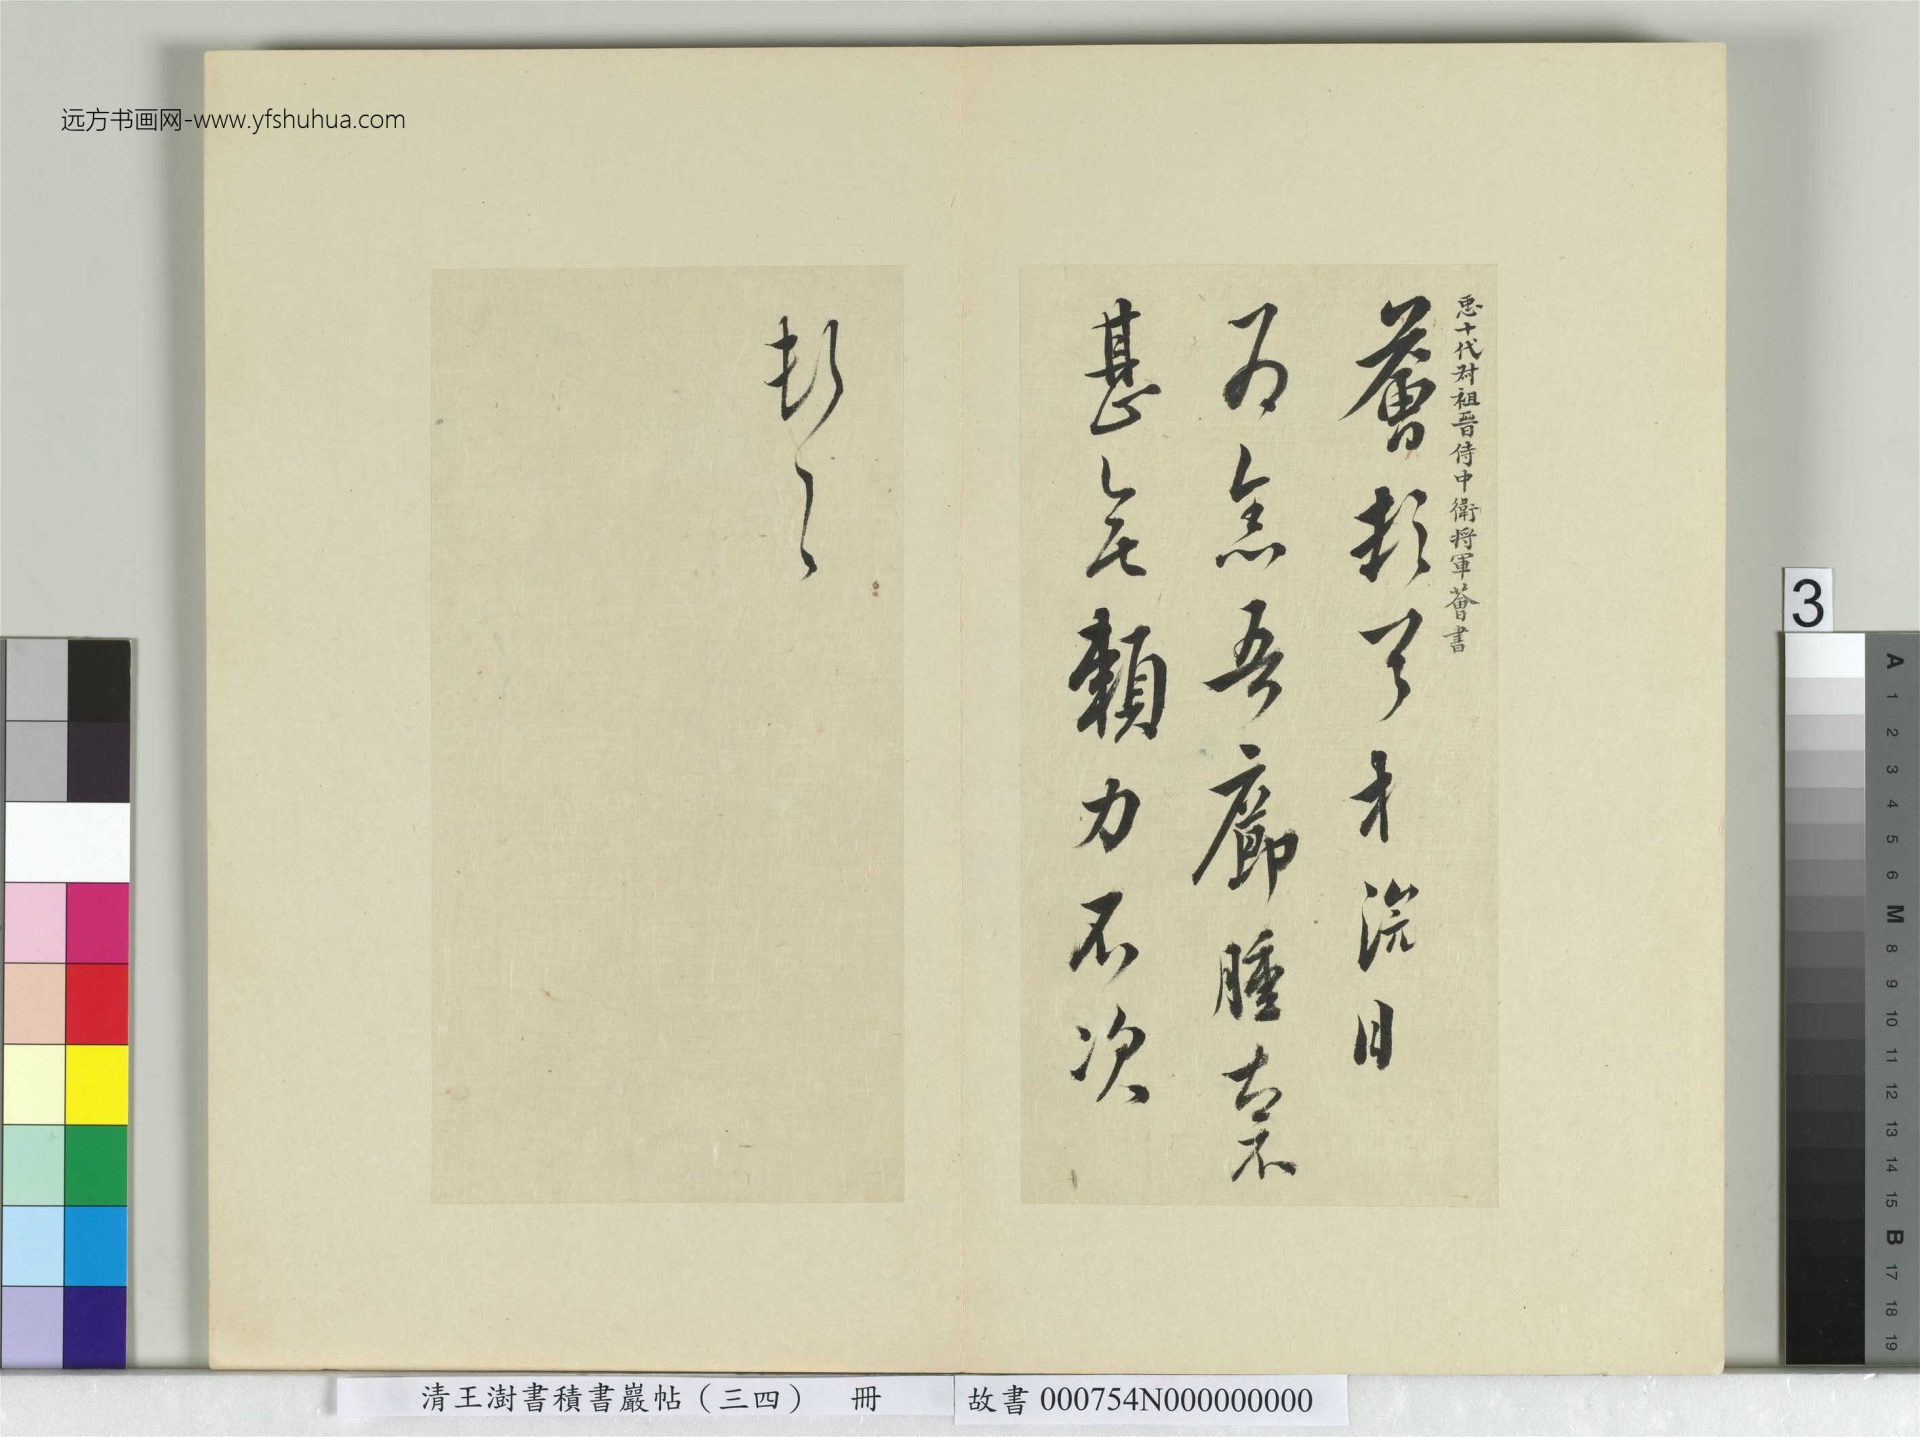 远方书画网-www.yfshuhua.com
𢘑十代祖晉侍中衛將軍薈書
薈頓首才
為念吾癤腫
甚無賴力不次
頓首
清王澍書積書巖帖（三四） 冊
故書 000754N000000000
3
A
1
2
3
4
5
6
M
8
9
10
11
12
13
14
15
B
17
18
19